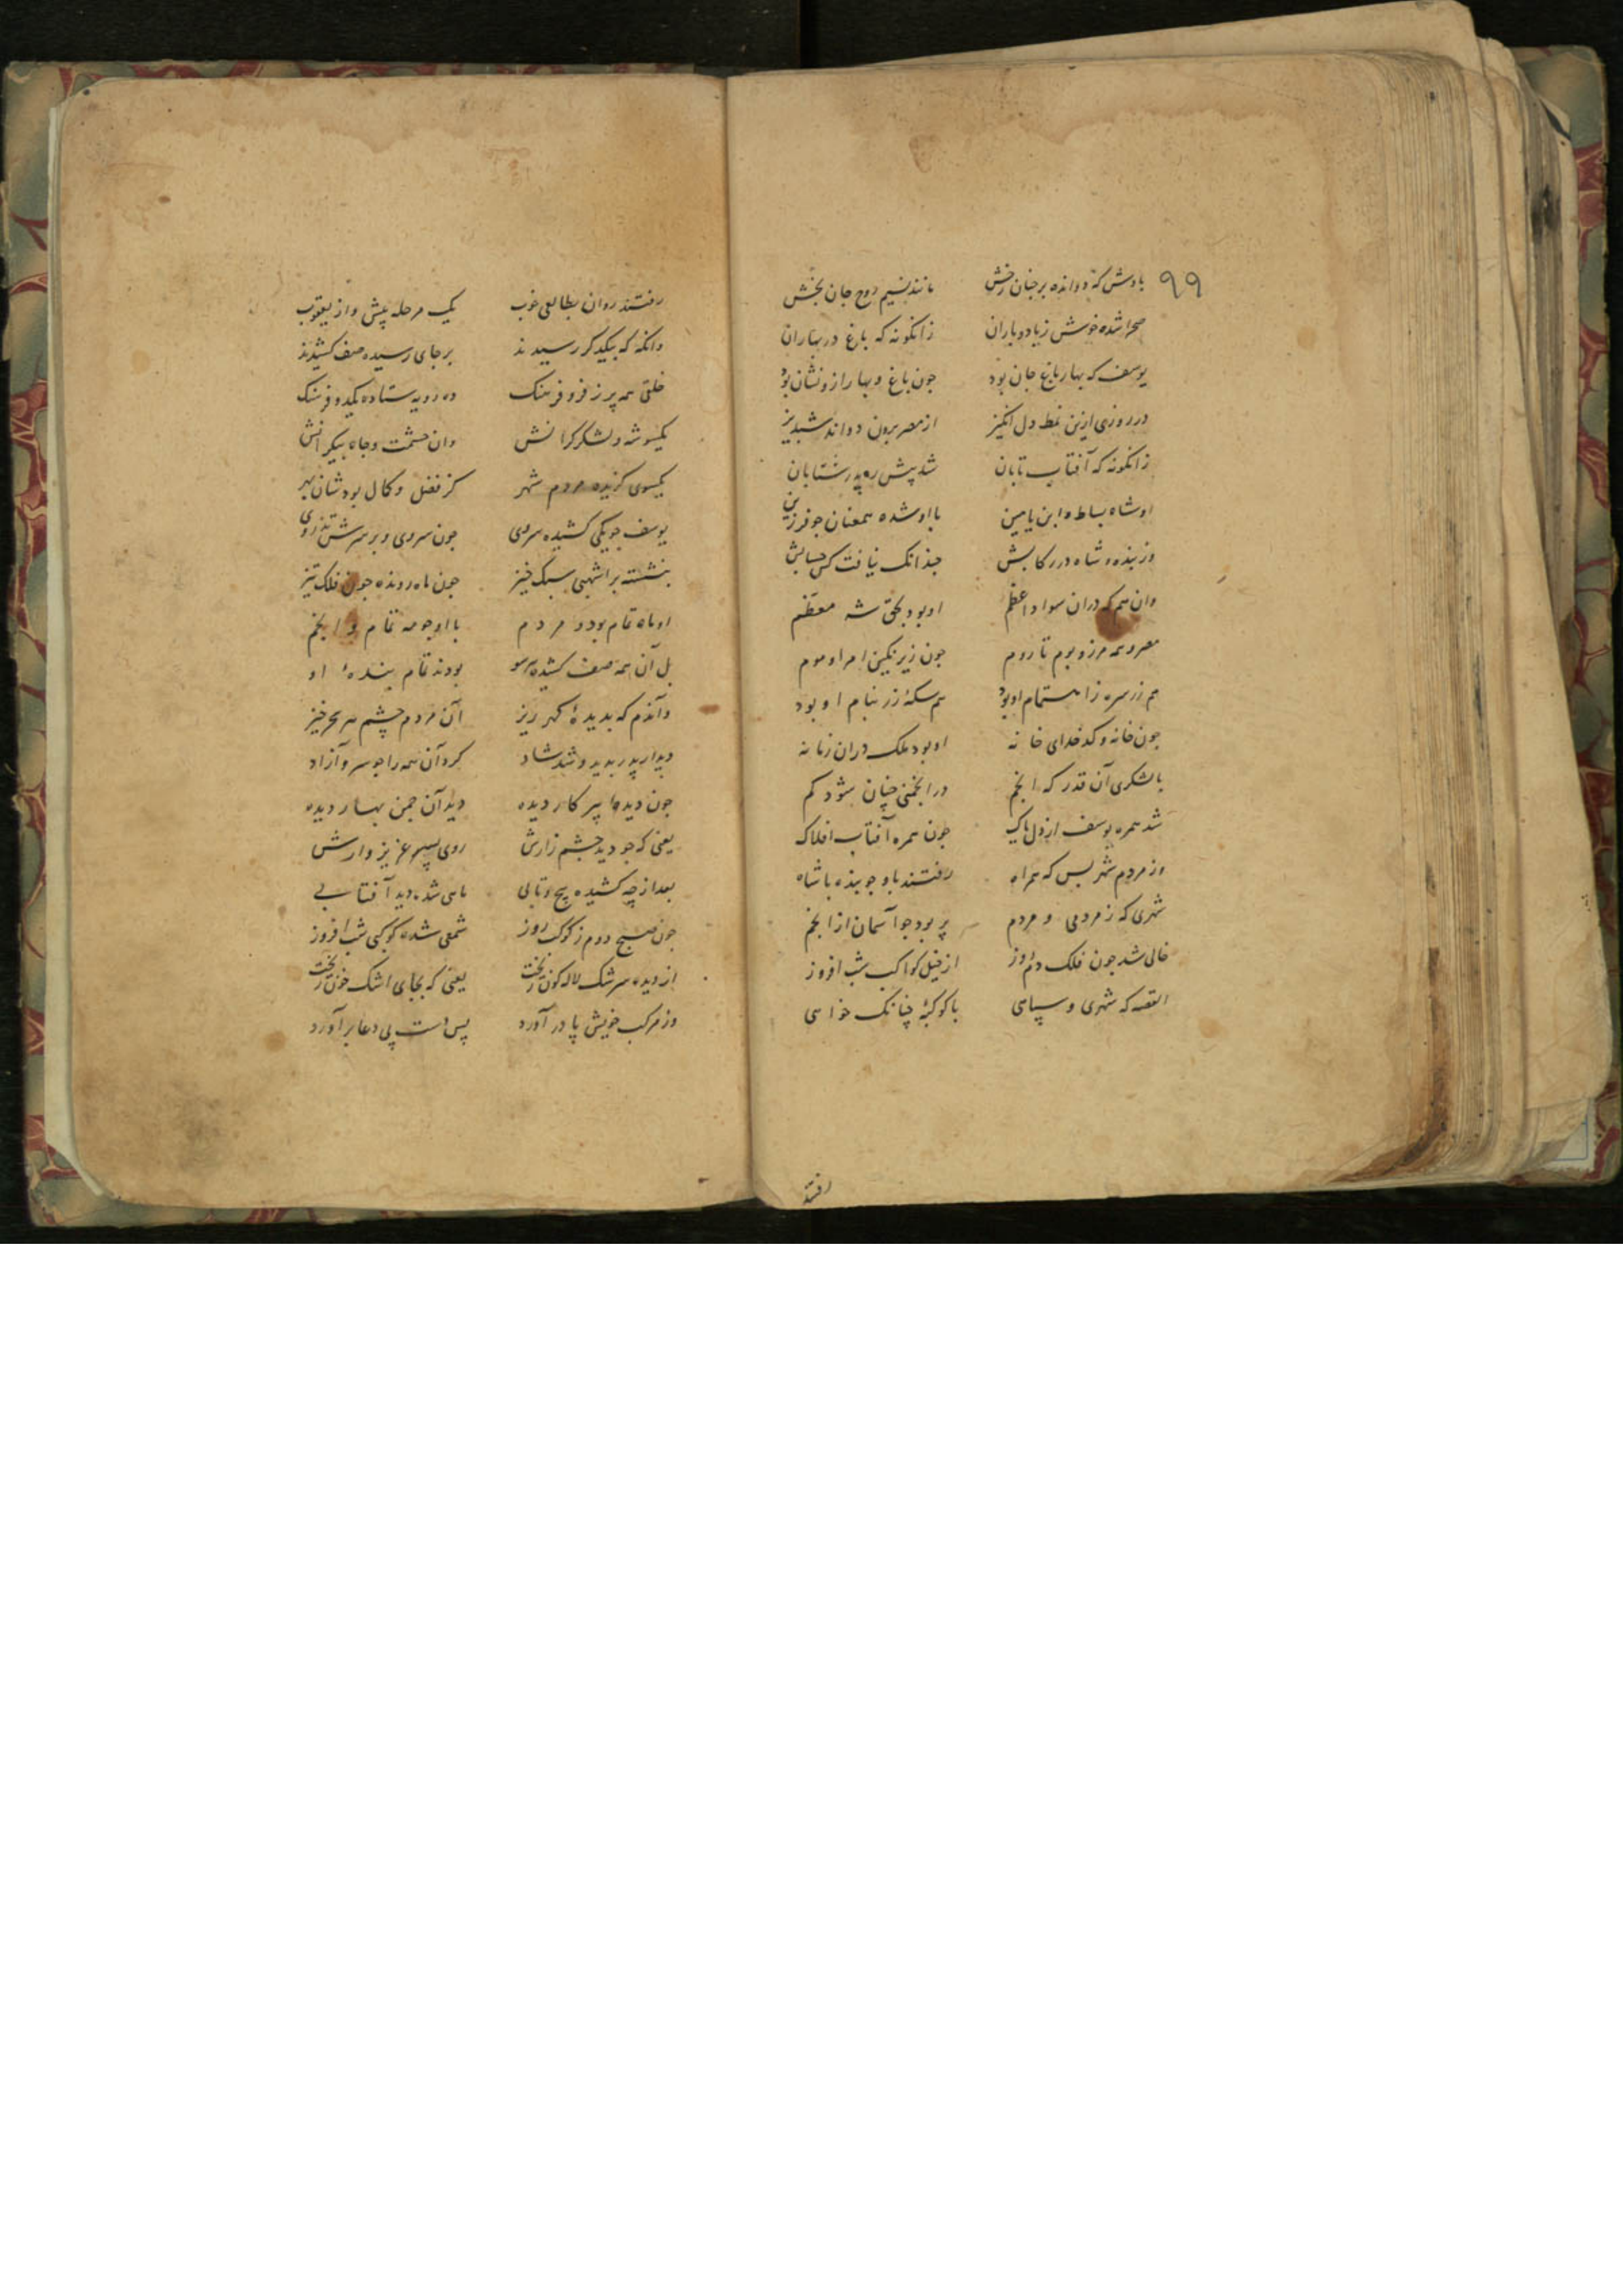 ۹۹
بادش که دوانده بر جنان رخش مانند نسیم روح جان بخش
صحرا شده خوش زباد و باران زانکونه که باغ در بهاران
یوسف که بهار باغ جان بود جون باغ و بهار ازو نشان بود
در روزی ازین نمط دل انکیز از مصر برون دواند شبدیز
زانکونه که آفتاب تابان شد پیش ره پدر شتابان
او شاه بساط و ابن یامین با او شده همعنان جو فرزین
وز بنده و شاه در رکابش جندانک نیافت کس حسابش
وان هم که دران سواد اعظم او بود بحق شه معظم
مصر و همه مرز و بوم تا روم جون زیر نکین امر او موم
هم زر سره ز اهتمام او بود هم سکهٔ زر بنام او بود
جون خانه و کدخدای خانه او بود ملک دران زمانه
با لشکری آن قدر که انجم در انجمنی جنان شود کم
شد همره یوسف از دل پاک جون همره آفتاب افلاک
وز مردم شهر بس که همراه رفتند باو جو بنده با شاه
شهری که ز مردمی و مردم پر بود جو آسمان از انجم
خالی شد جون فلک دم روز از خیل کواکب شب افروز
القصه که شهری و سپاهی با کوکبهٔ جنانک خواهی
رفتند
رفتند روان بطالعی خوب یک مرحله پیش واز یعقوب
وانکه که بیکدکر رسیدند بر جای رسیده صف کشیدند
خلقی همه پر ز فر و فرهنک ده رویه ستاده یکدو فرسنک
یکسو شه و لشکر کرانش وان حشمت و جاه بیکرانش
یکسوی کزیده مردم شهر کز فضل و کمال بودشان بهر
یوسف جو یکی کشیده سروی جون سروی و بر سرش تذروی
بنشسته بر اشهبی سبک خیز جون ماه رونده جون فلک تیز
او ماه تمام بود و مردم با او جو مه تمام و انجم
بل آن همه صف کشیده هر سو بودند تمام بندهٔ او
وآندم که بدیدهٔ کهر ریز آن مردم چشم هر سحر خیز
دیدار پدر بدید و شد شاد کرد آن همه را جو سرو آزاد
جون دیدهٔ پیر کار دیده دید آن جمن بهار دیده
یعنی که جو دید جشم زارش روی پسر عزیز وارش
بعد از چه کشیده پیچ و تابی ماهی شده دید آفتابی
جون صبح دوم ز کوکب روز شمعی شده کوکبی شب افروز
از دیده سرشک لاله کون ریخت یعنی که بجای اشک خون ریخت
وز مرکب خویش پا در آورد پس دست پی دعا بر آورد